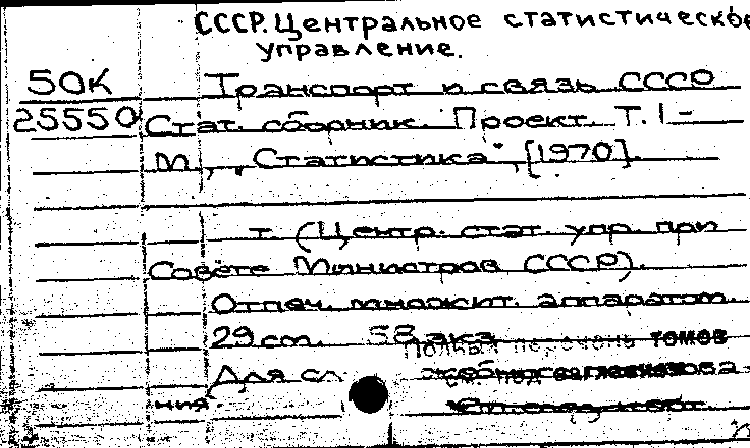 СССР. Центральное статистическое
управление.
50К Транспорт и связь СССР
25550 Стат. сборник. Проект. Т. 1 -
М., „Статистика", [1970].
т. (Центр. стат. упр. при
Совете Министров СССР).
Отпеч. множит. аппаратом.
29 см. 58 экз.
Полный перечень томов
Для сл
ния.